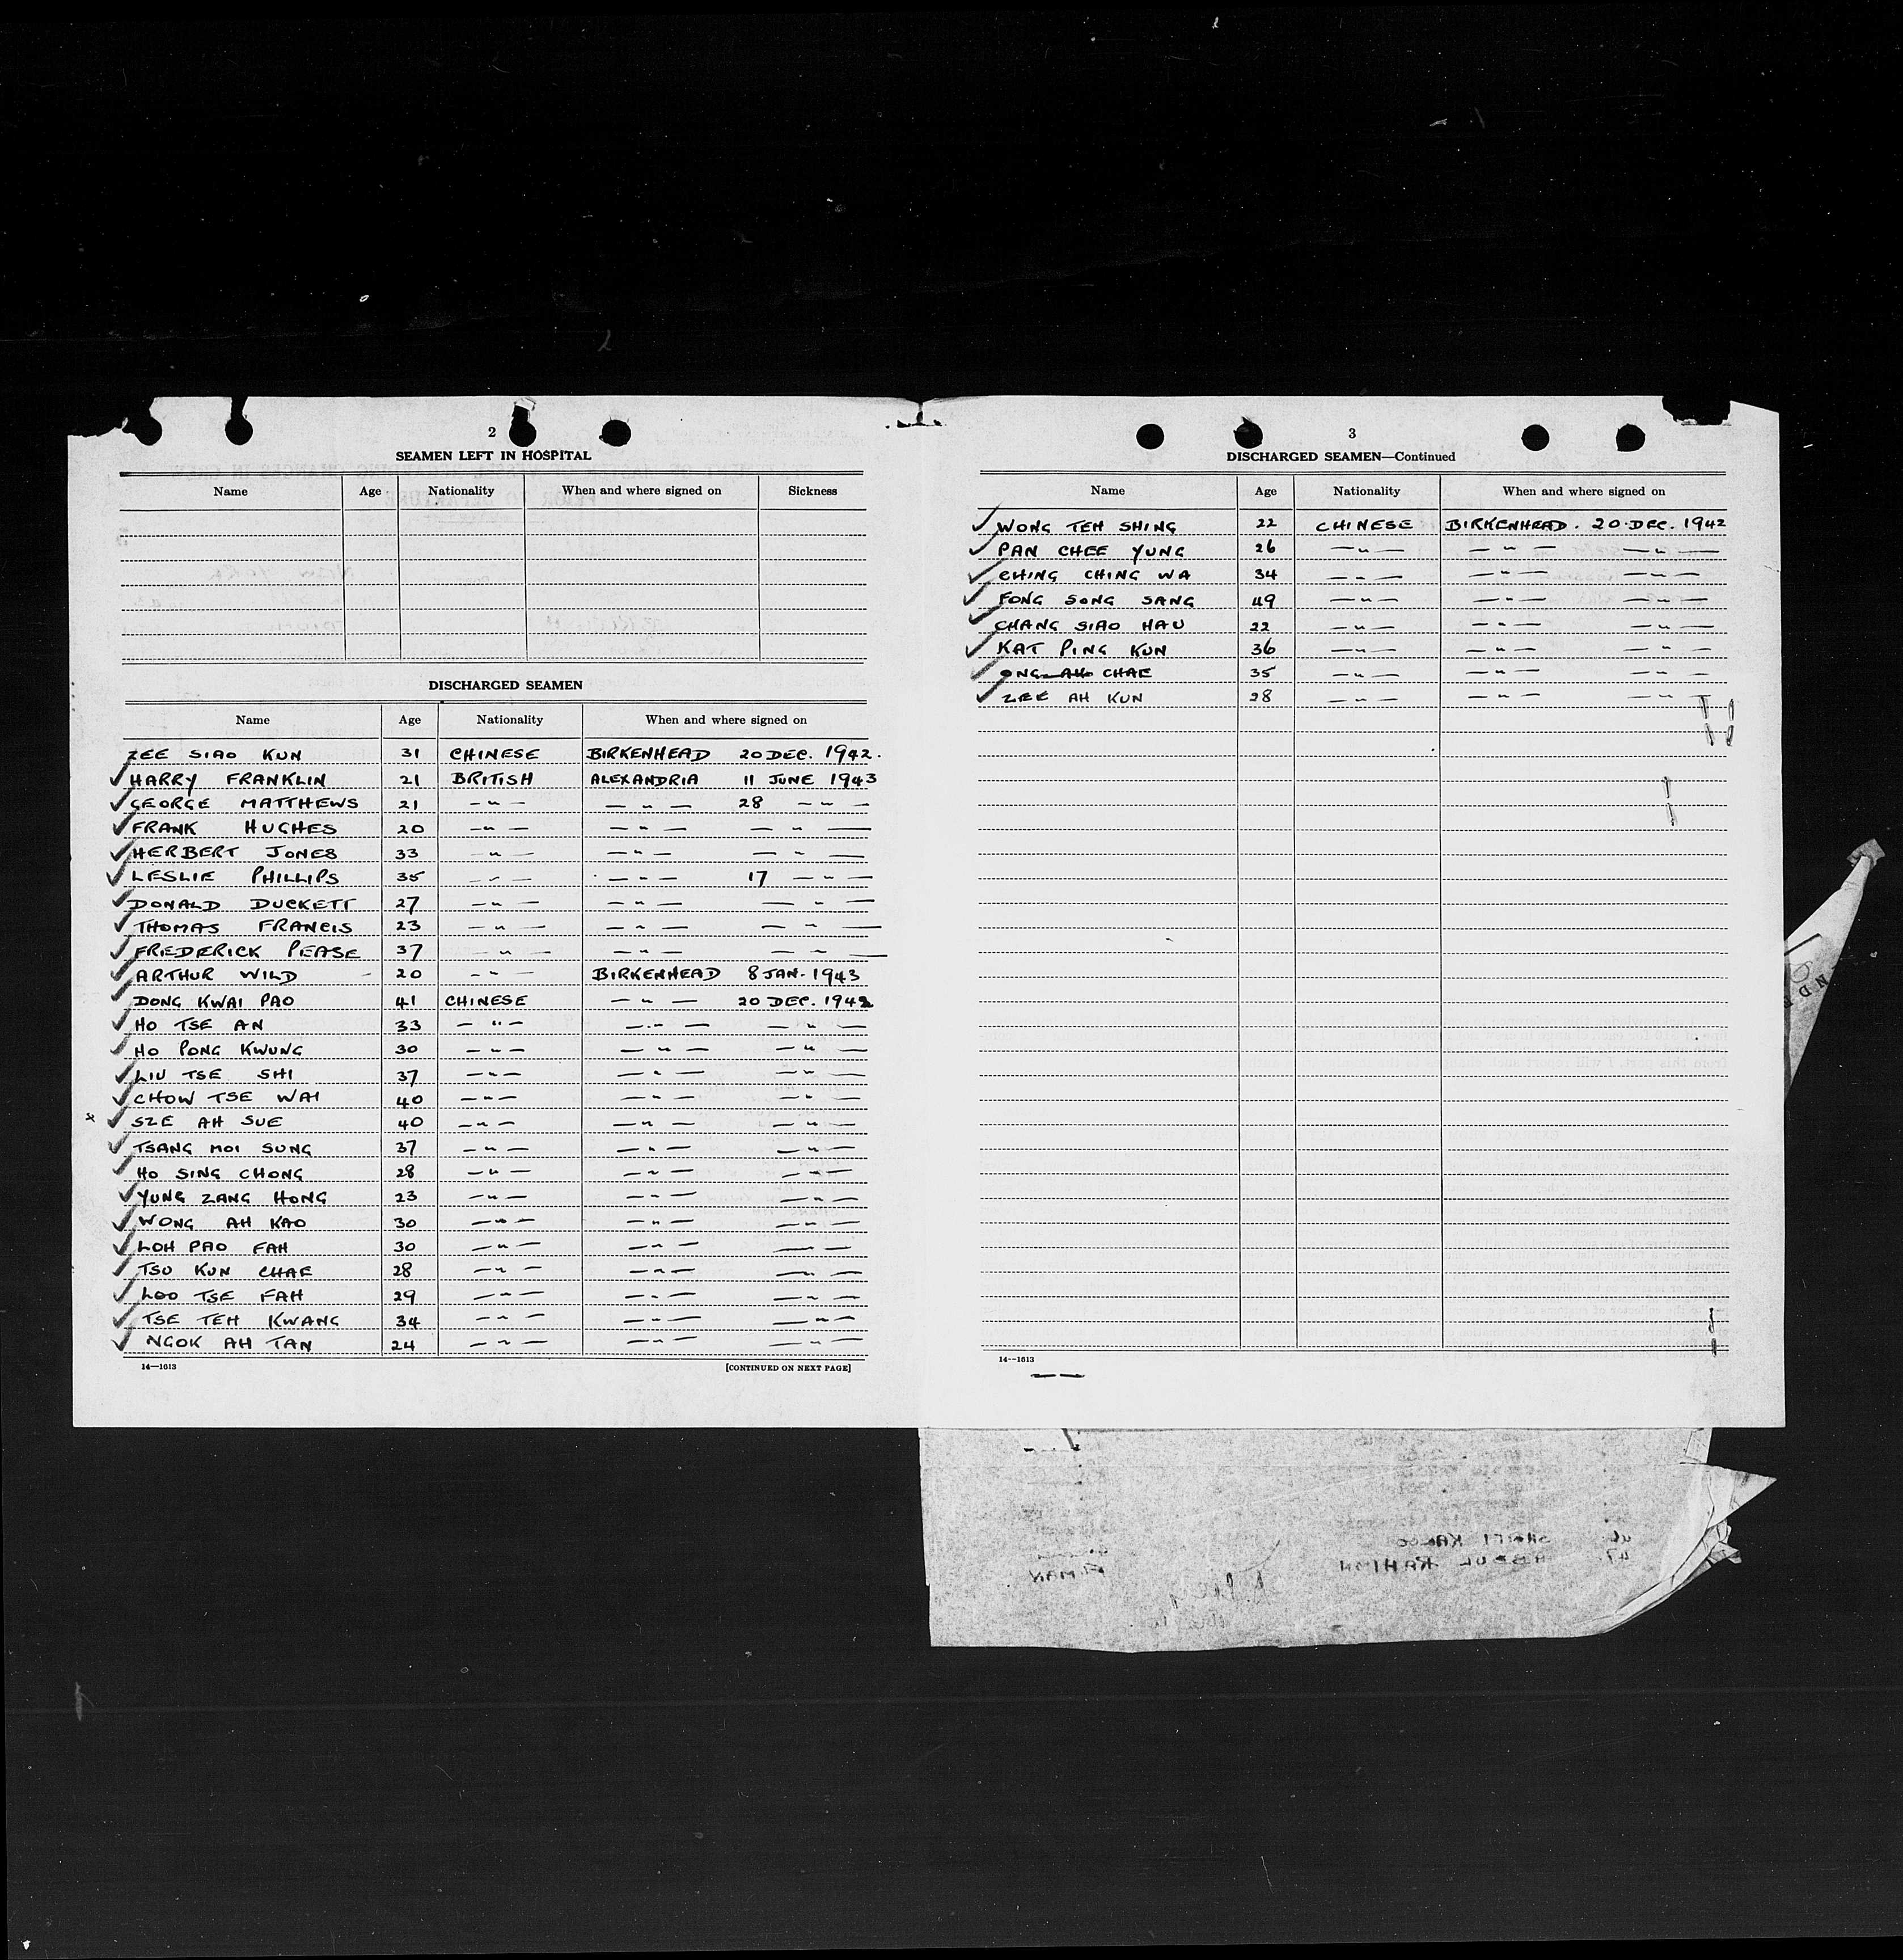 2
SEAMEN LEFT IN HOSPITAL
Name Age Nationality When and where signed on Sickness
DISCHARGED SEAMEN
Name Age Nationality When and where signed on
ZEE SIAO KUN 31 CHINESE BIRKENHEAD 20 DEC. 1942.
✓ HARRY FRANKLIN 21 BRITISH ALEXANDRIA 11 JUNE 1943
✓ GEORGE MATTHEWS 21 — " — — " — 28 — " —
✓ FRANK HUGHES 20 — " — — " — — " —
✓ HERBERT JONES 33 — " — — " — — " —
✓ LESLIE PHILLIPS 35 — " — — " — 17 — " —
✓ DONALD DUCKETT 27 — " — — " — — " —
✓ THOMAS FRANCIS 23 — " — — " — — " —
✓ FREDERICK PEASE 37 — " — — " — — " —
✓ ARTHUR WILD 20 — " — BIRKENHEAD 8 JAN. 1943
✓ DONG KWAI PAO 41 CHINESE — " — 20 DEC. 1942
✓ HO TSE AN 33 — " — — " — — " —
✓ HO PONG KWUNG 30 — " — — " — — " —
✓ LIU TSE SHI 37 — " — — " — — " —
✓ CHOW TSE WAI 40 — " — — " — — " —
x ✓ SZE AH SUE 40 — " — — " — — " —
✓ TSANG MOI SUNG 37 — " — — " — — " —
✓ HO SING CHONG 28 — " — — " — — " —
✓ YUNG ZANG HONG 23 — " — — " — — " —
✓ WONG AH KAO 30 — " — — " — — " —
✓ LOH PAO FAH 30 — " — — " — — " —
✓ TSU KUN CHAE 28 — " — — " — — " —
✓ LOO TSE FAH 29 — " — — " — — " —
✓ TSE TEH KWANG 34 — " — — " — — " —
✓ NGOK AH TAN 24 — " — — " — — " —
14—1613 [CONTINUED ON NEXT PAGE]
3
DISCHARGED SEAMEN—Continued
Name Age Nationality When and where signed on
✓ WONG TEH SHING 22 CHINESE BIRKENHEAD. 20·DEC. 1942
✓ PAN CHEE YUNG 26 — " — — " — — " —
✓ CHING CHING WA 34 — " — — " — — " —
✓ FONG SONG SANG 49 — " — — " — — " —
✓ CHANG SIAO HAU 22 — " — — " — — " —
✓ KAT PING KUN 36 — " — — " — — " —
✓ ONG AH CHAE 35 — " — — " — — " —
✓ ZEE AH KUN 28 — " — — " — — " —
14—1613
46
47 ABDUL RAHIM